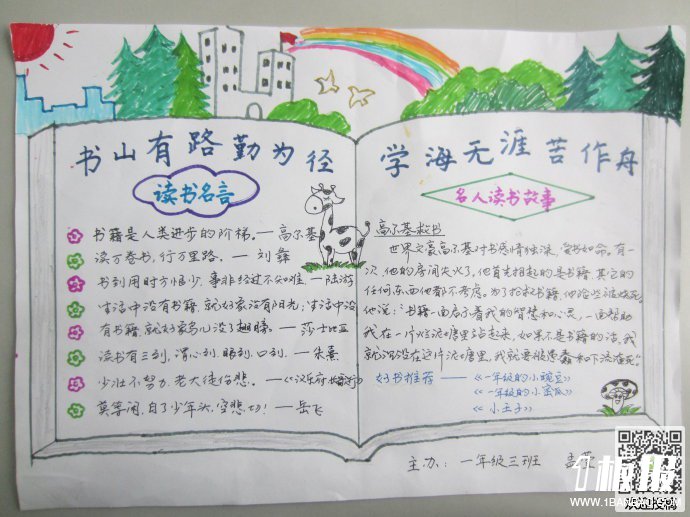 书山有路勤为径
学海无涯苦作舟
读书名言
书籍是人类进步的阶梯。—高尔基
读万卷书,行万里路。— 刘彝
书到用时方恨少,事非经过不知难。—陆游
生活中没有书籍,就好象没有阳光;生活中没
有书籍,就好象鸟儿没了翅膀。— 莎士比亚
读书有三到,谓心到,眼到,口到。—朱熹
少壮不努力,老大徒伤悲。—《汉乐府·长歌行》
莫等闲,白了少年头,空悲切!— 岳飞
名人读书故事
高尔基救书
世界文豪高尔基对书感情独深,爱书如命。有一
次,他的房间失火了,他首先抱起的是书籍,其它的
任何东西他都不考虑。为了抢救书籍,他险些被烧死。
他说:“书籍一面启示着我的智慧和心灵,一面帮助
我在一片烂泥塘里站起来,如果不是书籍的话,我
就沉没在这片泥塘里,我就要被愚蠢和下流淹死。”
好书推荐 ——《一年级的小豌豆》
《一年级的小蜜瓜》
《小王子》
主办:一年级三班 孟
板报
WWW.1BANBAO.COM
欢迎投稿